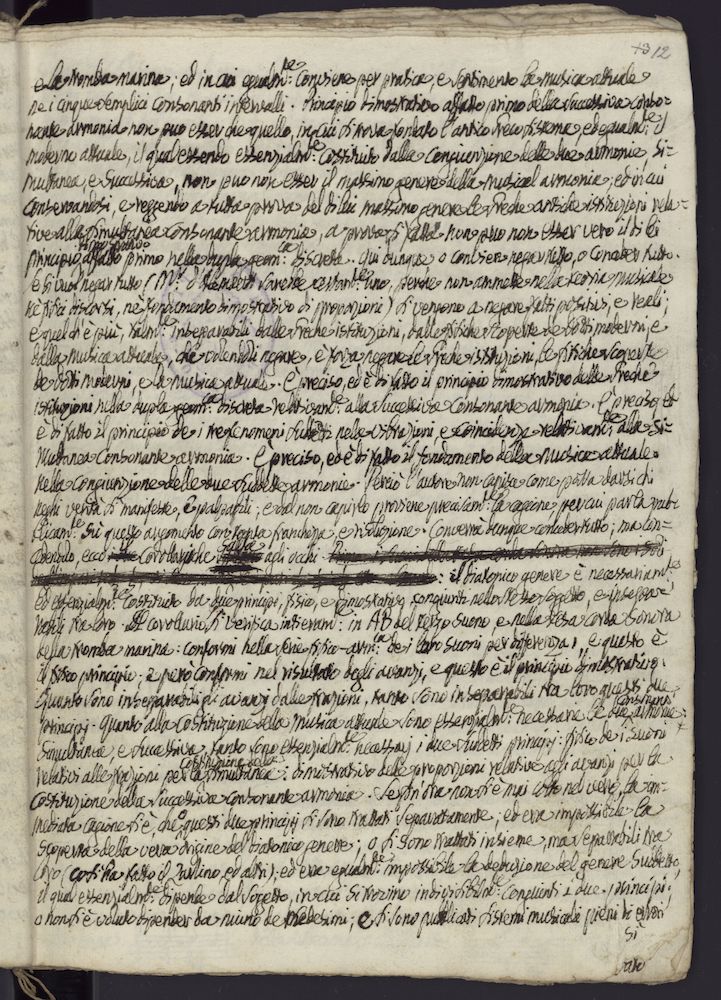 312
e la tromba marina; ed in cui egualm.te conviene per pratica, e sentimento la musica attuale
ne i cinque semplici consonanti intervalli. Principio dimostrativo affatto primo della successiva conso-
nante armonia non può esser che quello, in cui si trova fondato l'antico Greco sistema, ed egualm.te il
moderno attuale, il qual essendo essenzialm.te costituito dalla congiunzione delle due armonie si-
multanea, e successiva, non può non esser il massimo genere della musical armonia; ed in cui
conservandosi, e reggendo a tutta prova del di lui massimo genere le Greche antiche istituzioni rela-
tive alla simultanea consonante armonia, a prova di fatto non può non esser vero il di lui
dimostrativo
principio affatto primo nella dupla geom.ca discreta. Qui dunque o conviene negar tutto, o conceder tutto.
Se si vuol negar tutto (M.r d'Alembert sarebbe certam.te uno, perche non ammette nella teoria musicale
nè fisici discorsi, ne fondamento dimostrativo di proporzioni) si vengono a negare fatti positivi, e reali;
e quel ch'è più, talm.te inseparabili dalle Greche istituzioni, dalle fisiche scoperte de dotti moderni, e
dalla musica attuale, che volendoli negare, è forza negare le Greche istituzioni, le fisiche scoperte
de dotti moderni, e la musica attuale. È preciso, ed è di fatto il principio dimostrativo delle Greche
istituzioni nella dupla geom.ca discreta relativam.te alla successiva consonante armonia. È preciso, ed
è di fatto il principio de i tre fenomeni sudetti nelle vibrazioni e coincidenze relativam.te alla si-
multanea consonante armonia. È preciso, ed è di fatto il fondamento della musica attuale
nella congiunzione delle due sudette armonie. Perciò l'autore non capisce come possa darsi chi
neghi verità sì manifeste, e palpabili; e dal non capirlo proviene precisam.te la cagione per cui parla pub-
blicam.te su questo argomento con tanta franchezza, e risoluzione. Converrà dunque conceder tutto; ma con-
cedendolo, ecco corolario che agli occhi
: il diatonico genere è necessariam.te
ed essenzialm.te costituito da due principj, fisico, e dimostrativo congiunti nello stesso soggetto, e insepar-
rabili tra loro. Il corolario si verifica interam.te in AB del terzo suono e nella tesa corda sonora
della tromba marina: conformi nella serie fisico-arm.ca de i loro suoni per differenza 1, e questo è
il fisico principio: e però conformi nel risultato degli avanzi, e questo è il principio dimostrativo.
Quanto sono inseparabili gli avanzi dalle frazioni, tanto sono inseparabili tra loro questi due
principj. Quanto alla costituzione della musica attuale sono essenzialm.te necessarie le due armonie
consonanti
simultanea, e successiva, tanto sono essenzialm.te necessarj i due sudetti principj: fisico de i suoni
costituzione della
relativi alle frazioni per la simultanea: dimostrativo delle proporzioni relative agli avanzi per la
costituzione della successiva consonante armonia. Se fin'ora non si è mai colto nel vero, la im-
mediata cagione si è che questi due principj si sono trattati separatamente; ed era impossibile la
scoperta della vera origine del diatonico genere; o si sono trattati insieme, ma separabili tra
loro (così ha fatto il Zarlino, ed altri); ed era egualm.te impossibile la deduzione del genere sudetto,
il qual essenzialm.te dipende dal soggetto, in cui si trovino indivisibilm.te congiunti i due principj:
o non si è voluto dipender da niuno de medesimi; e si sono publicati sistemi musicali pieni di errori
Si